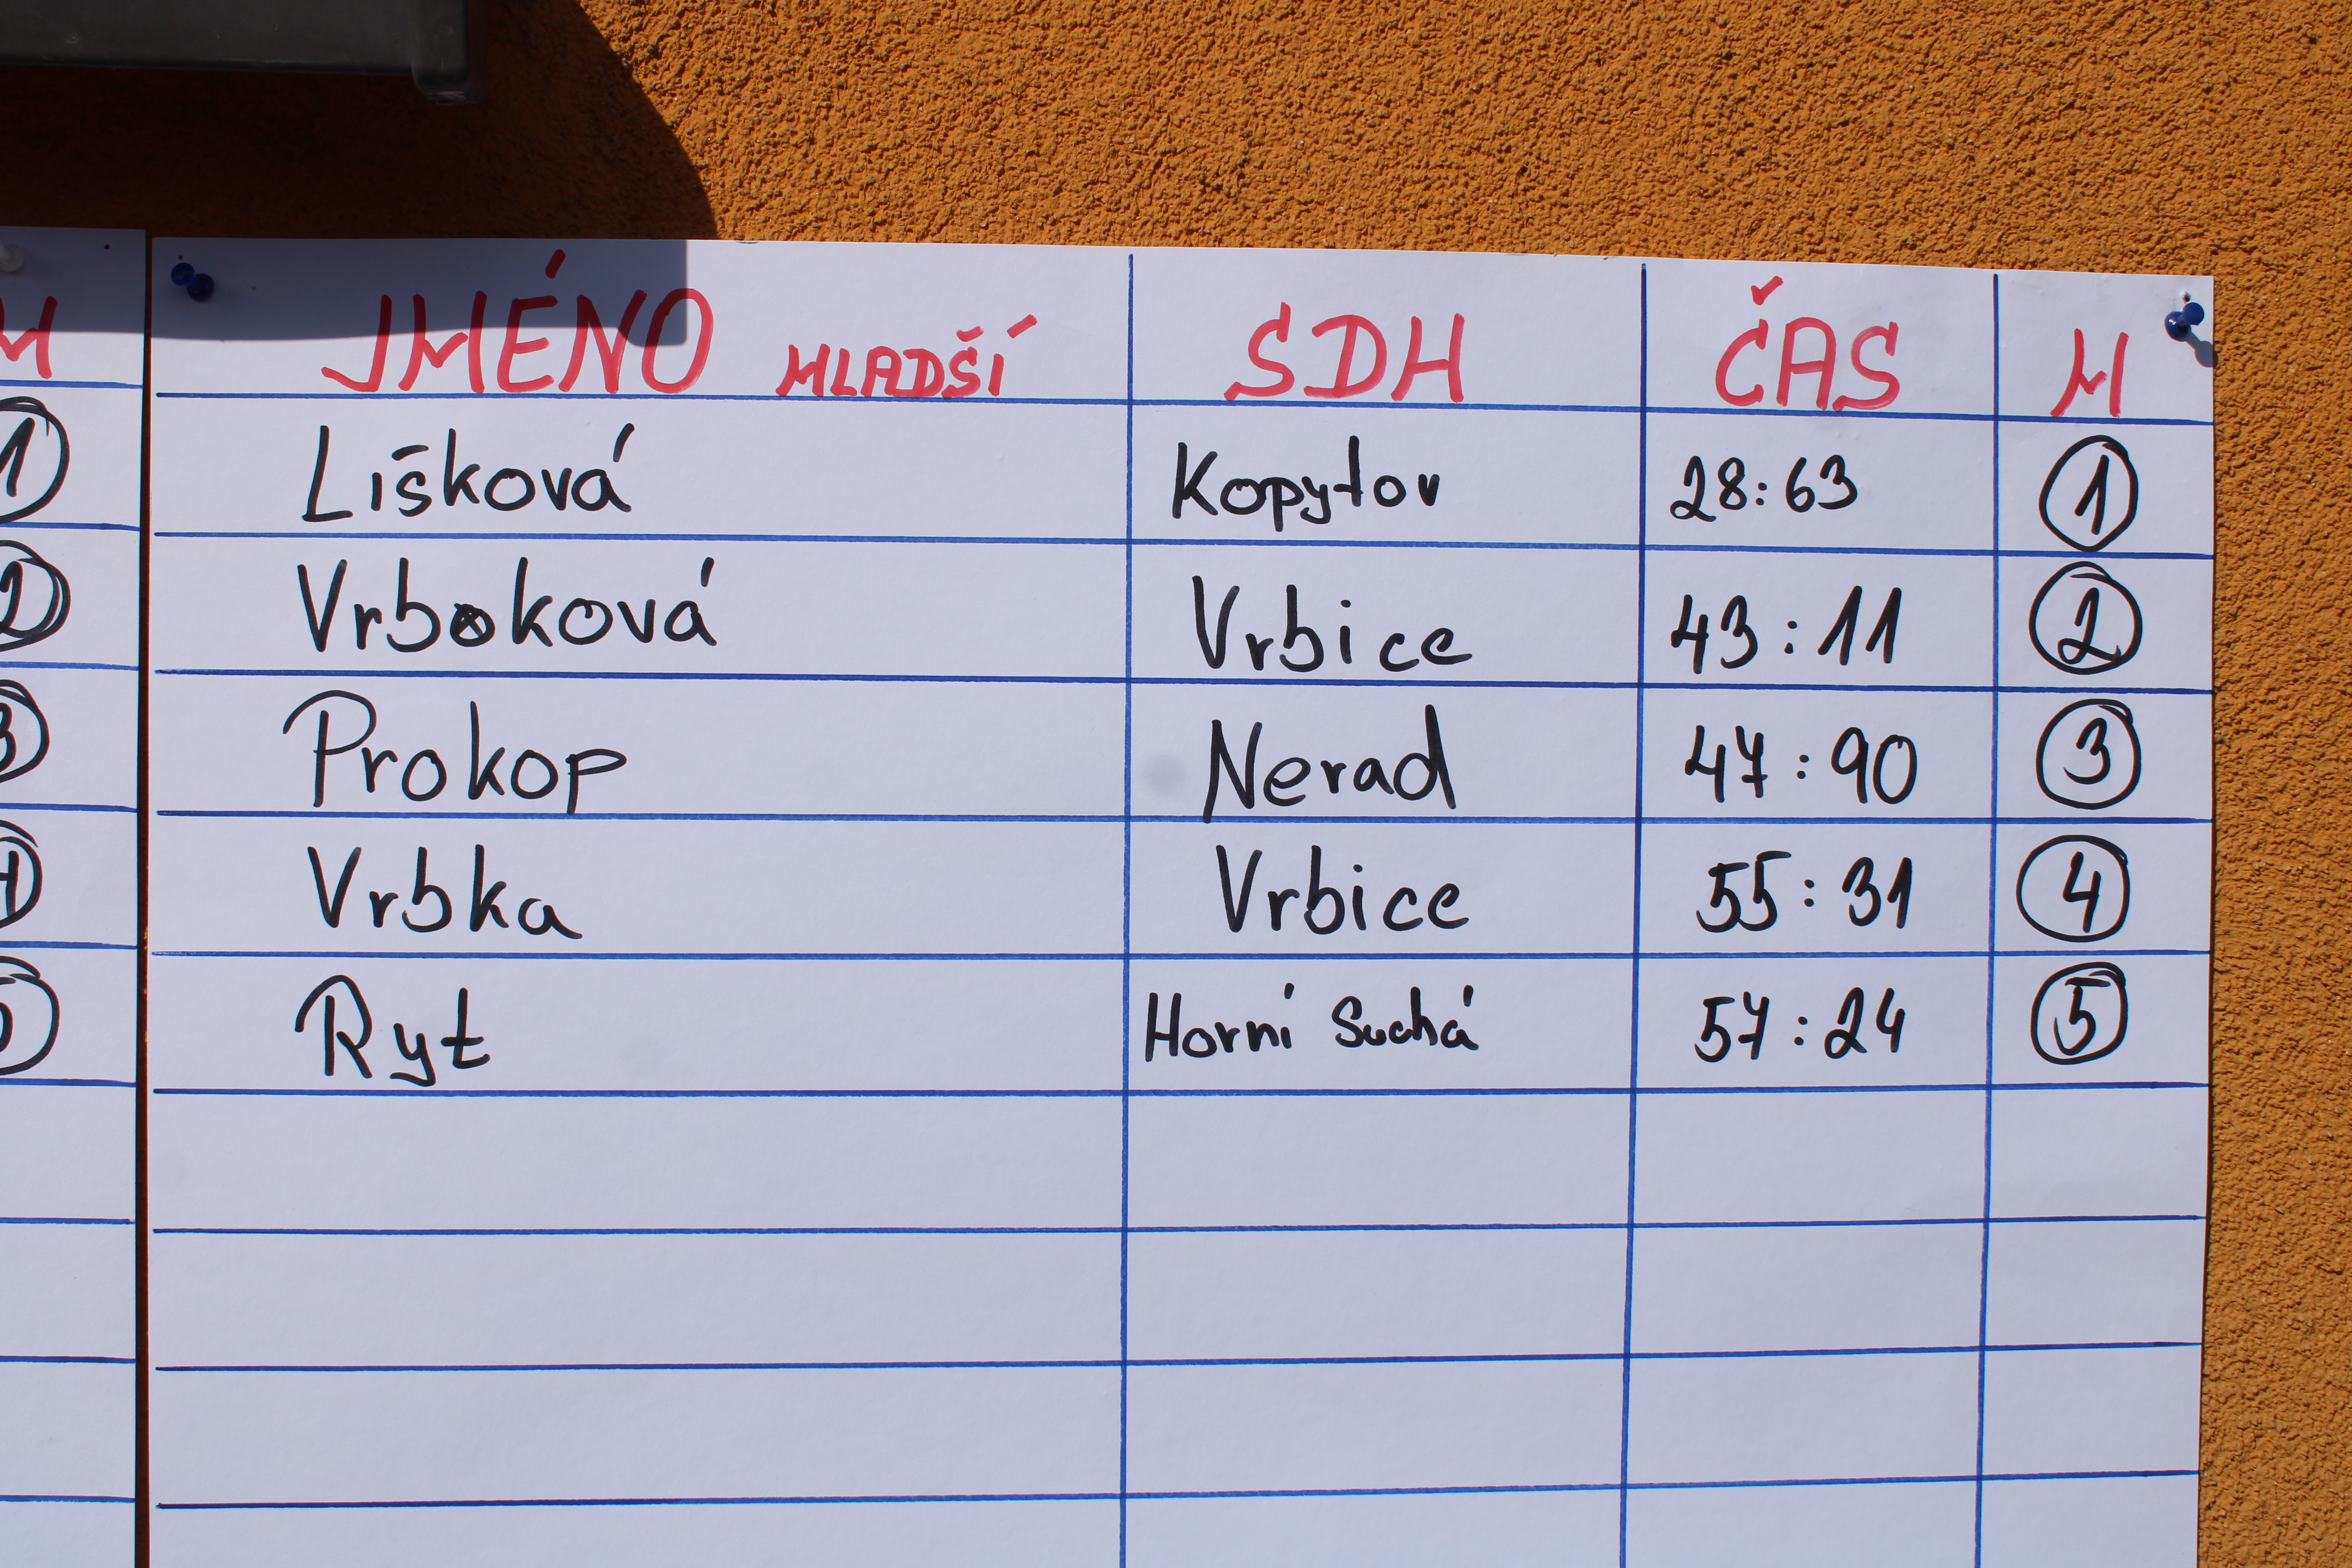 M
1
2
3
4
5
JMÉNO MLADŠÍ SDH ČAS M
Lišková Kopytov 28:63 1
Vrboková Vrbice 43:11 2
Prokop Nerad 47:90 3
Vrbka Vrbice 55:31 4
Ryt Horní Suchá 57:24 5